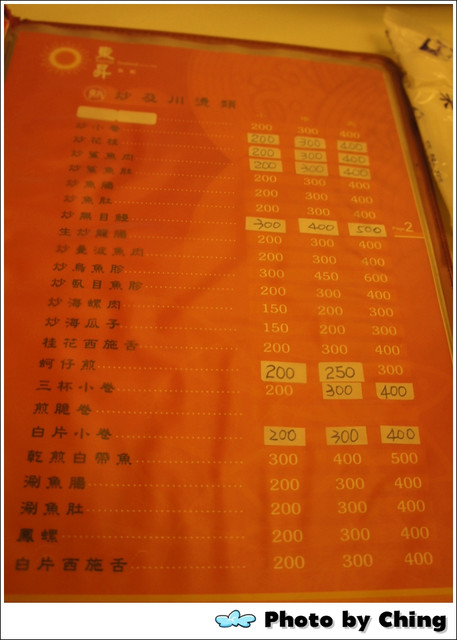 熱炒及川燙類
200 300 400
炒小卷 200 300 400
炒花枝 200 300 400
炒鯊魚肉 200 300 400
炒鯊魚肚 200 300 400
炒魚腸 200 300 400
炒魚肚 200 300 400
炒無目鰻 300 400 500
生炒腱腸 200 300 400
炒曼波魚肉 200 300 400
炒烏魚胗 300 450 600
炒虱目魚胗 200 300 400
炒海螺肉 150 200 300
炒海瓜子 150 200 300
桂花西施舌 200 300 400
蚵仔煎 200 250 300
三杯小卷 200 300 400
煎脆卷
白片小卷 200 300 400
乾煎白帶魚 300 400 500
涮魚腸 200 300 400
涮魚肚 200 300 400
鳳螺 200 300 400
白片西施舌 200 300 400
Page 2
Photo by Ching